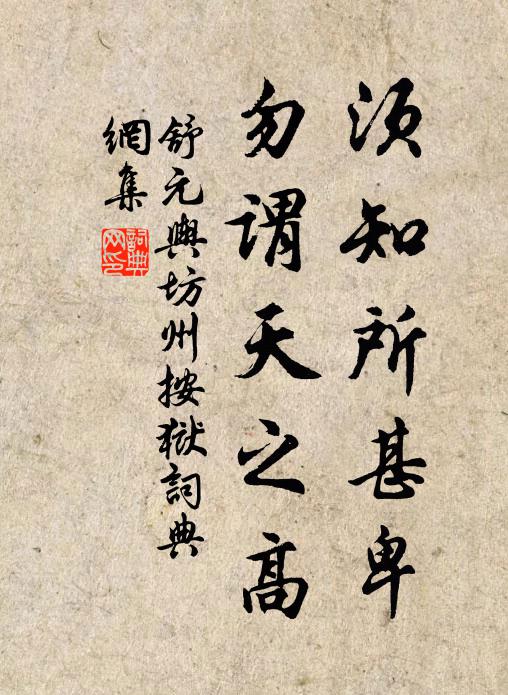 须知所甚卑
勿謂天之高
舒元輿坊州按獄詞典
網集
詞典网印